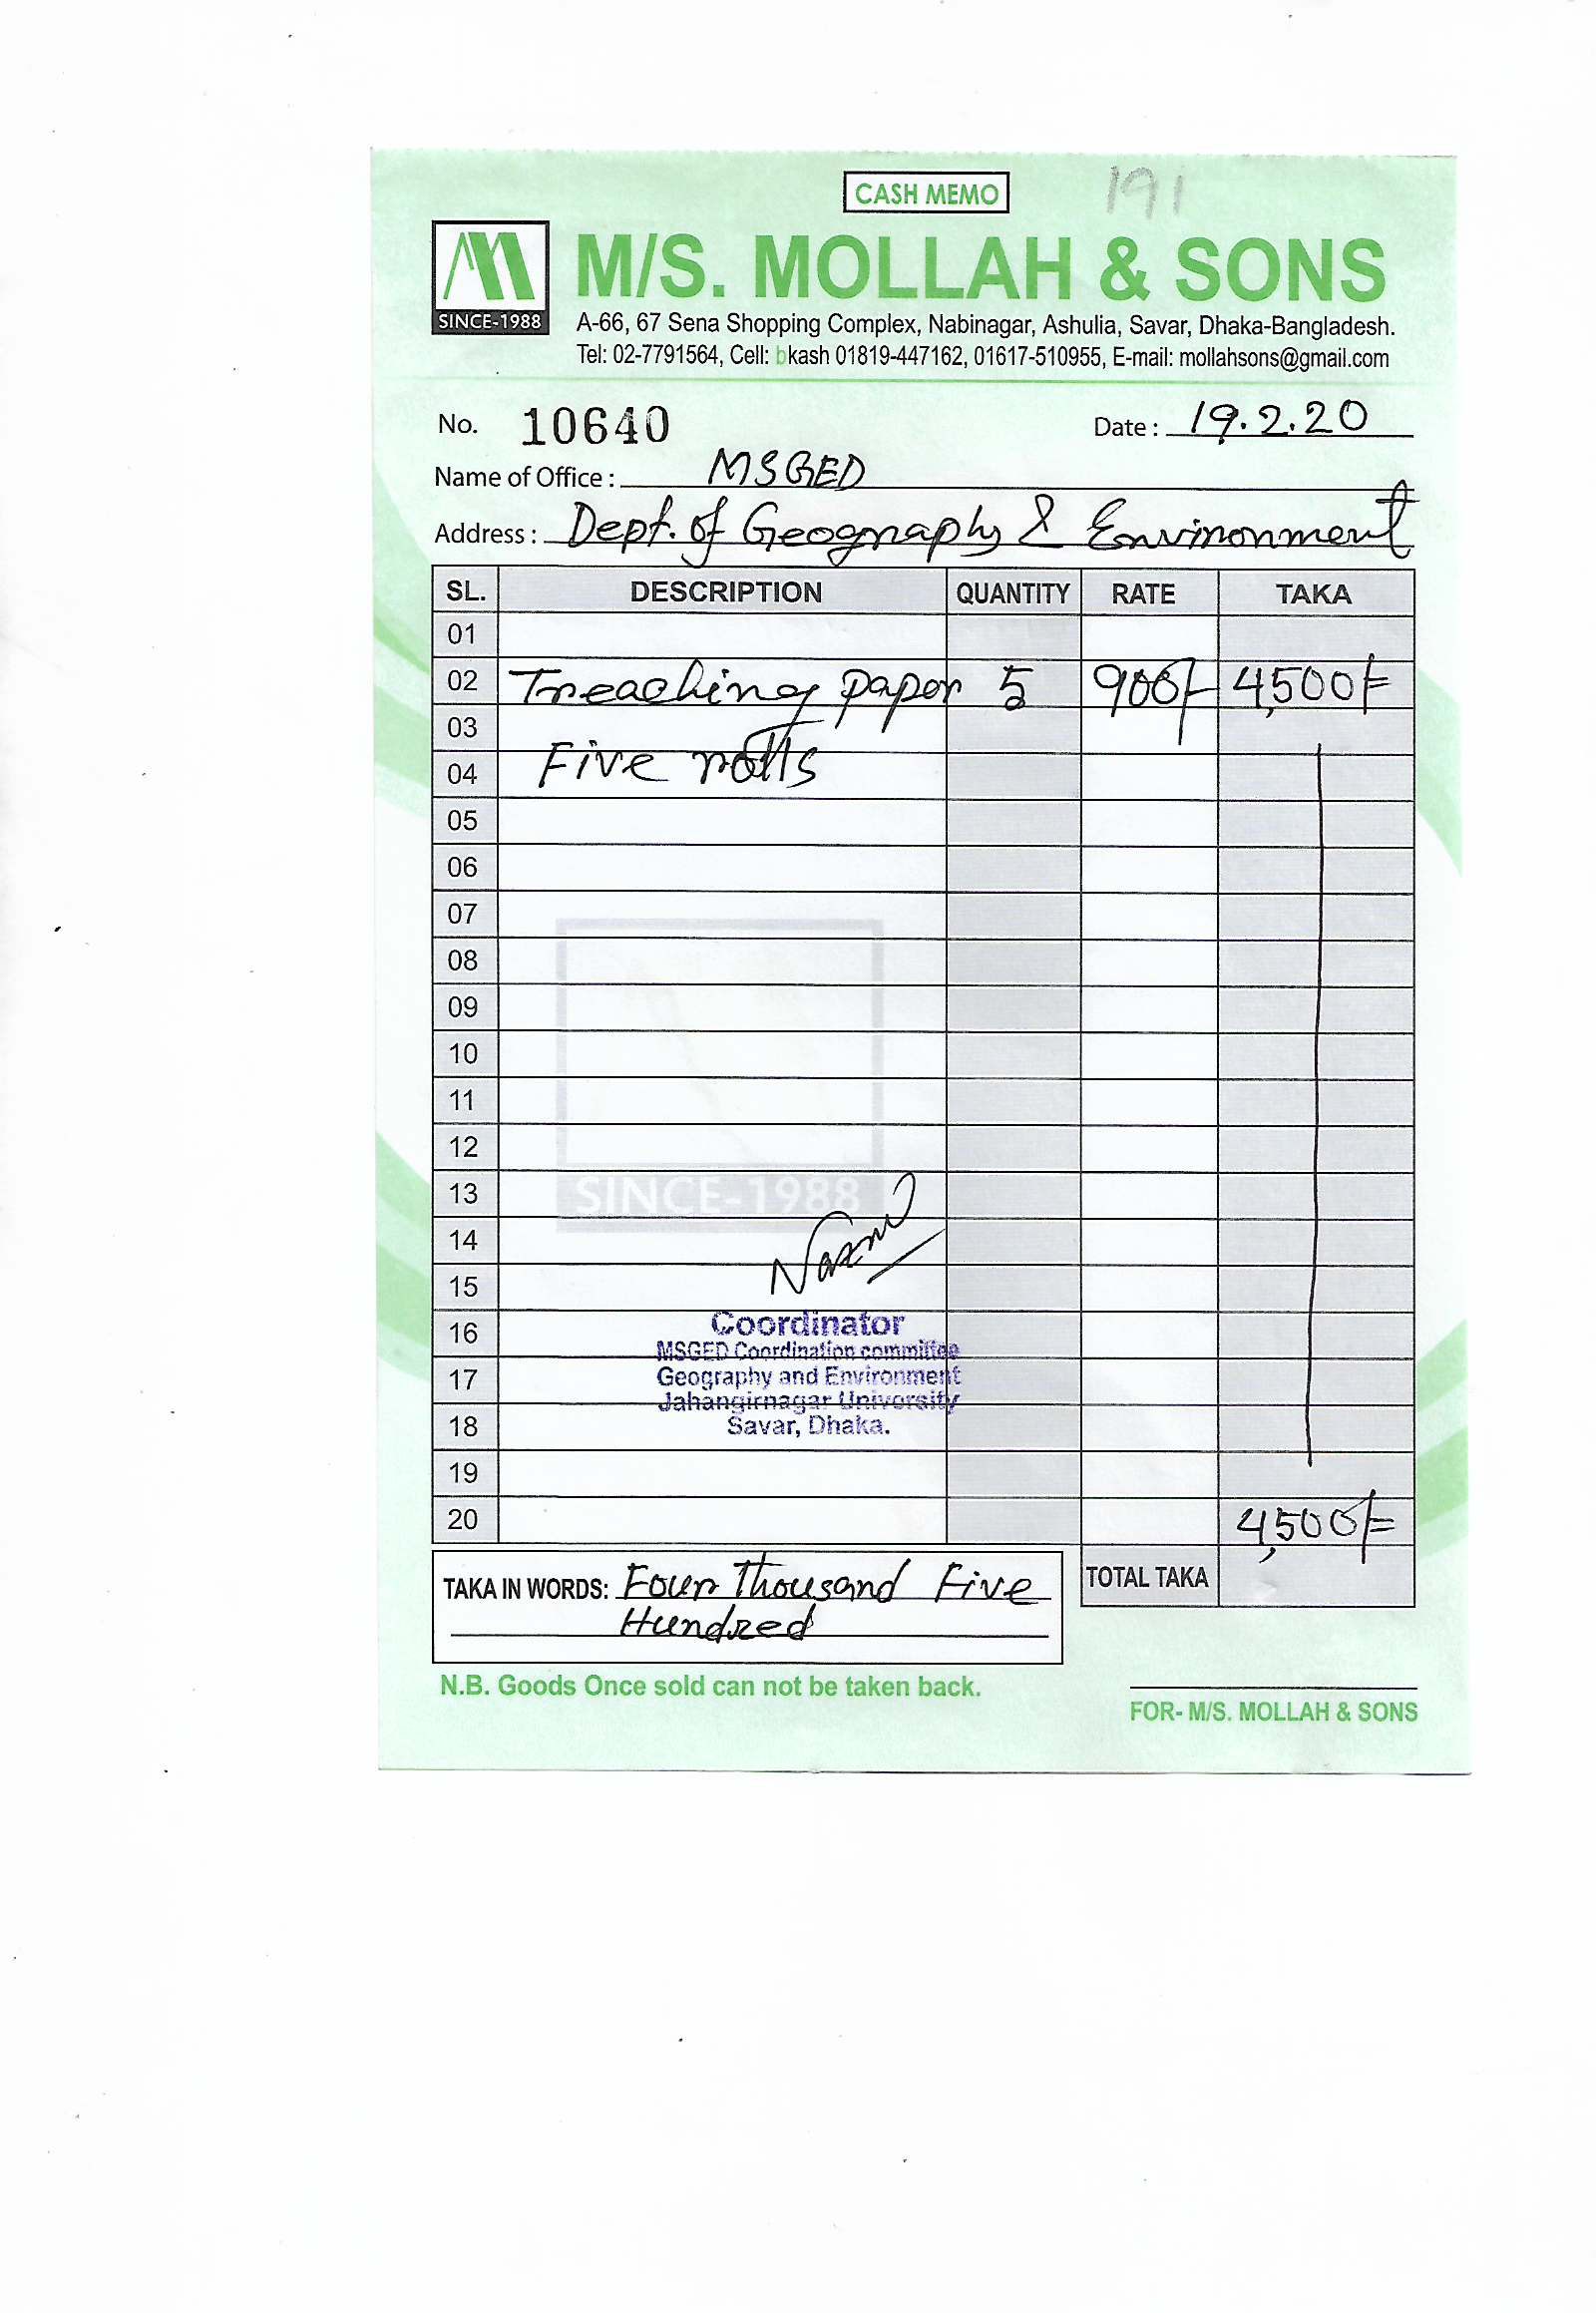 CASH MEMO
191
SINCE-1988
M/S. MOLLAH & SONS
A-66, 67 Sena Shopping Complex, Nabinagar, Ashulia, Savar, Dhaka-Bangladesh.
Tel: 02-7791564, Cell: bkash 01819-447162, 01617-510955, E-mail: mollahsons@gmail.com
No. 10640 Date : 19.2.20
Name of Office : MSGED
Address : Dept. of Geography & Environment
SL. DESCRIPTION QUANTITY RATE TAKA
01
02 Treaching paper 5 900/- 4,500/=
03
04 Five rolls
05
06
07
08
09
10
11
12
13 SINCE-1988
14
15
16 Coordinator
MSGED Coordination committee
17 Geography and Environment
Jahangirnagar University
18 Savar, Dhaka.
19
20 4,500/=
TAKA IN WORDS: Four Thousand Five TOTAL TAKA
Hundred
N.B. Goods Once sold can not be taken back.
FOR- M/S. MOLLAH & SONS